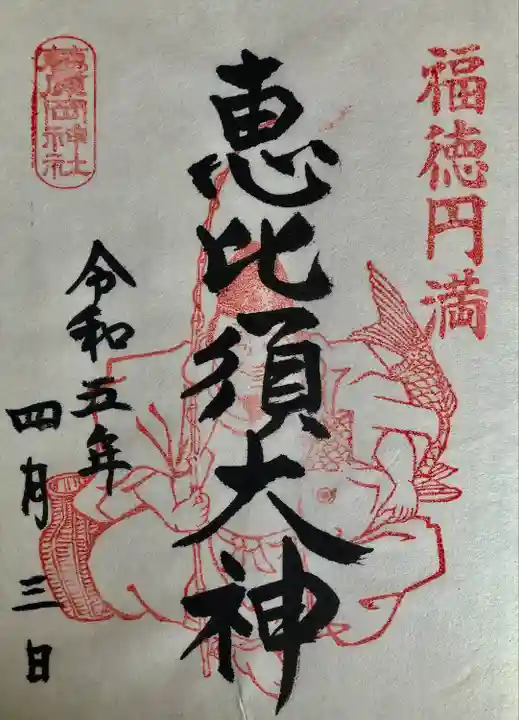 福徳円満
恵比須大神
令和五年
四月三日